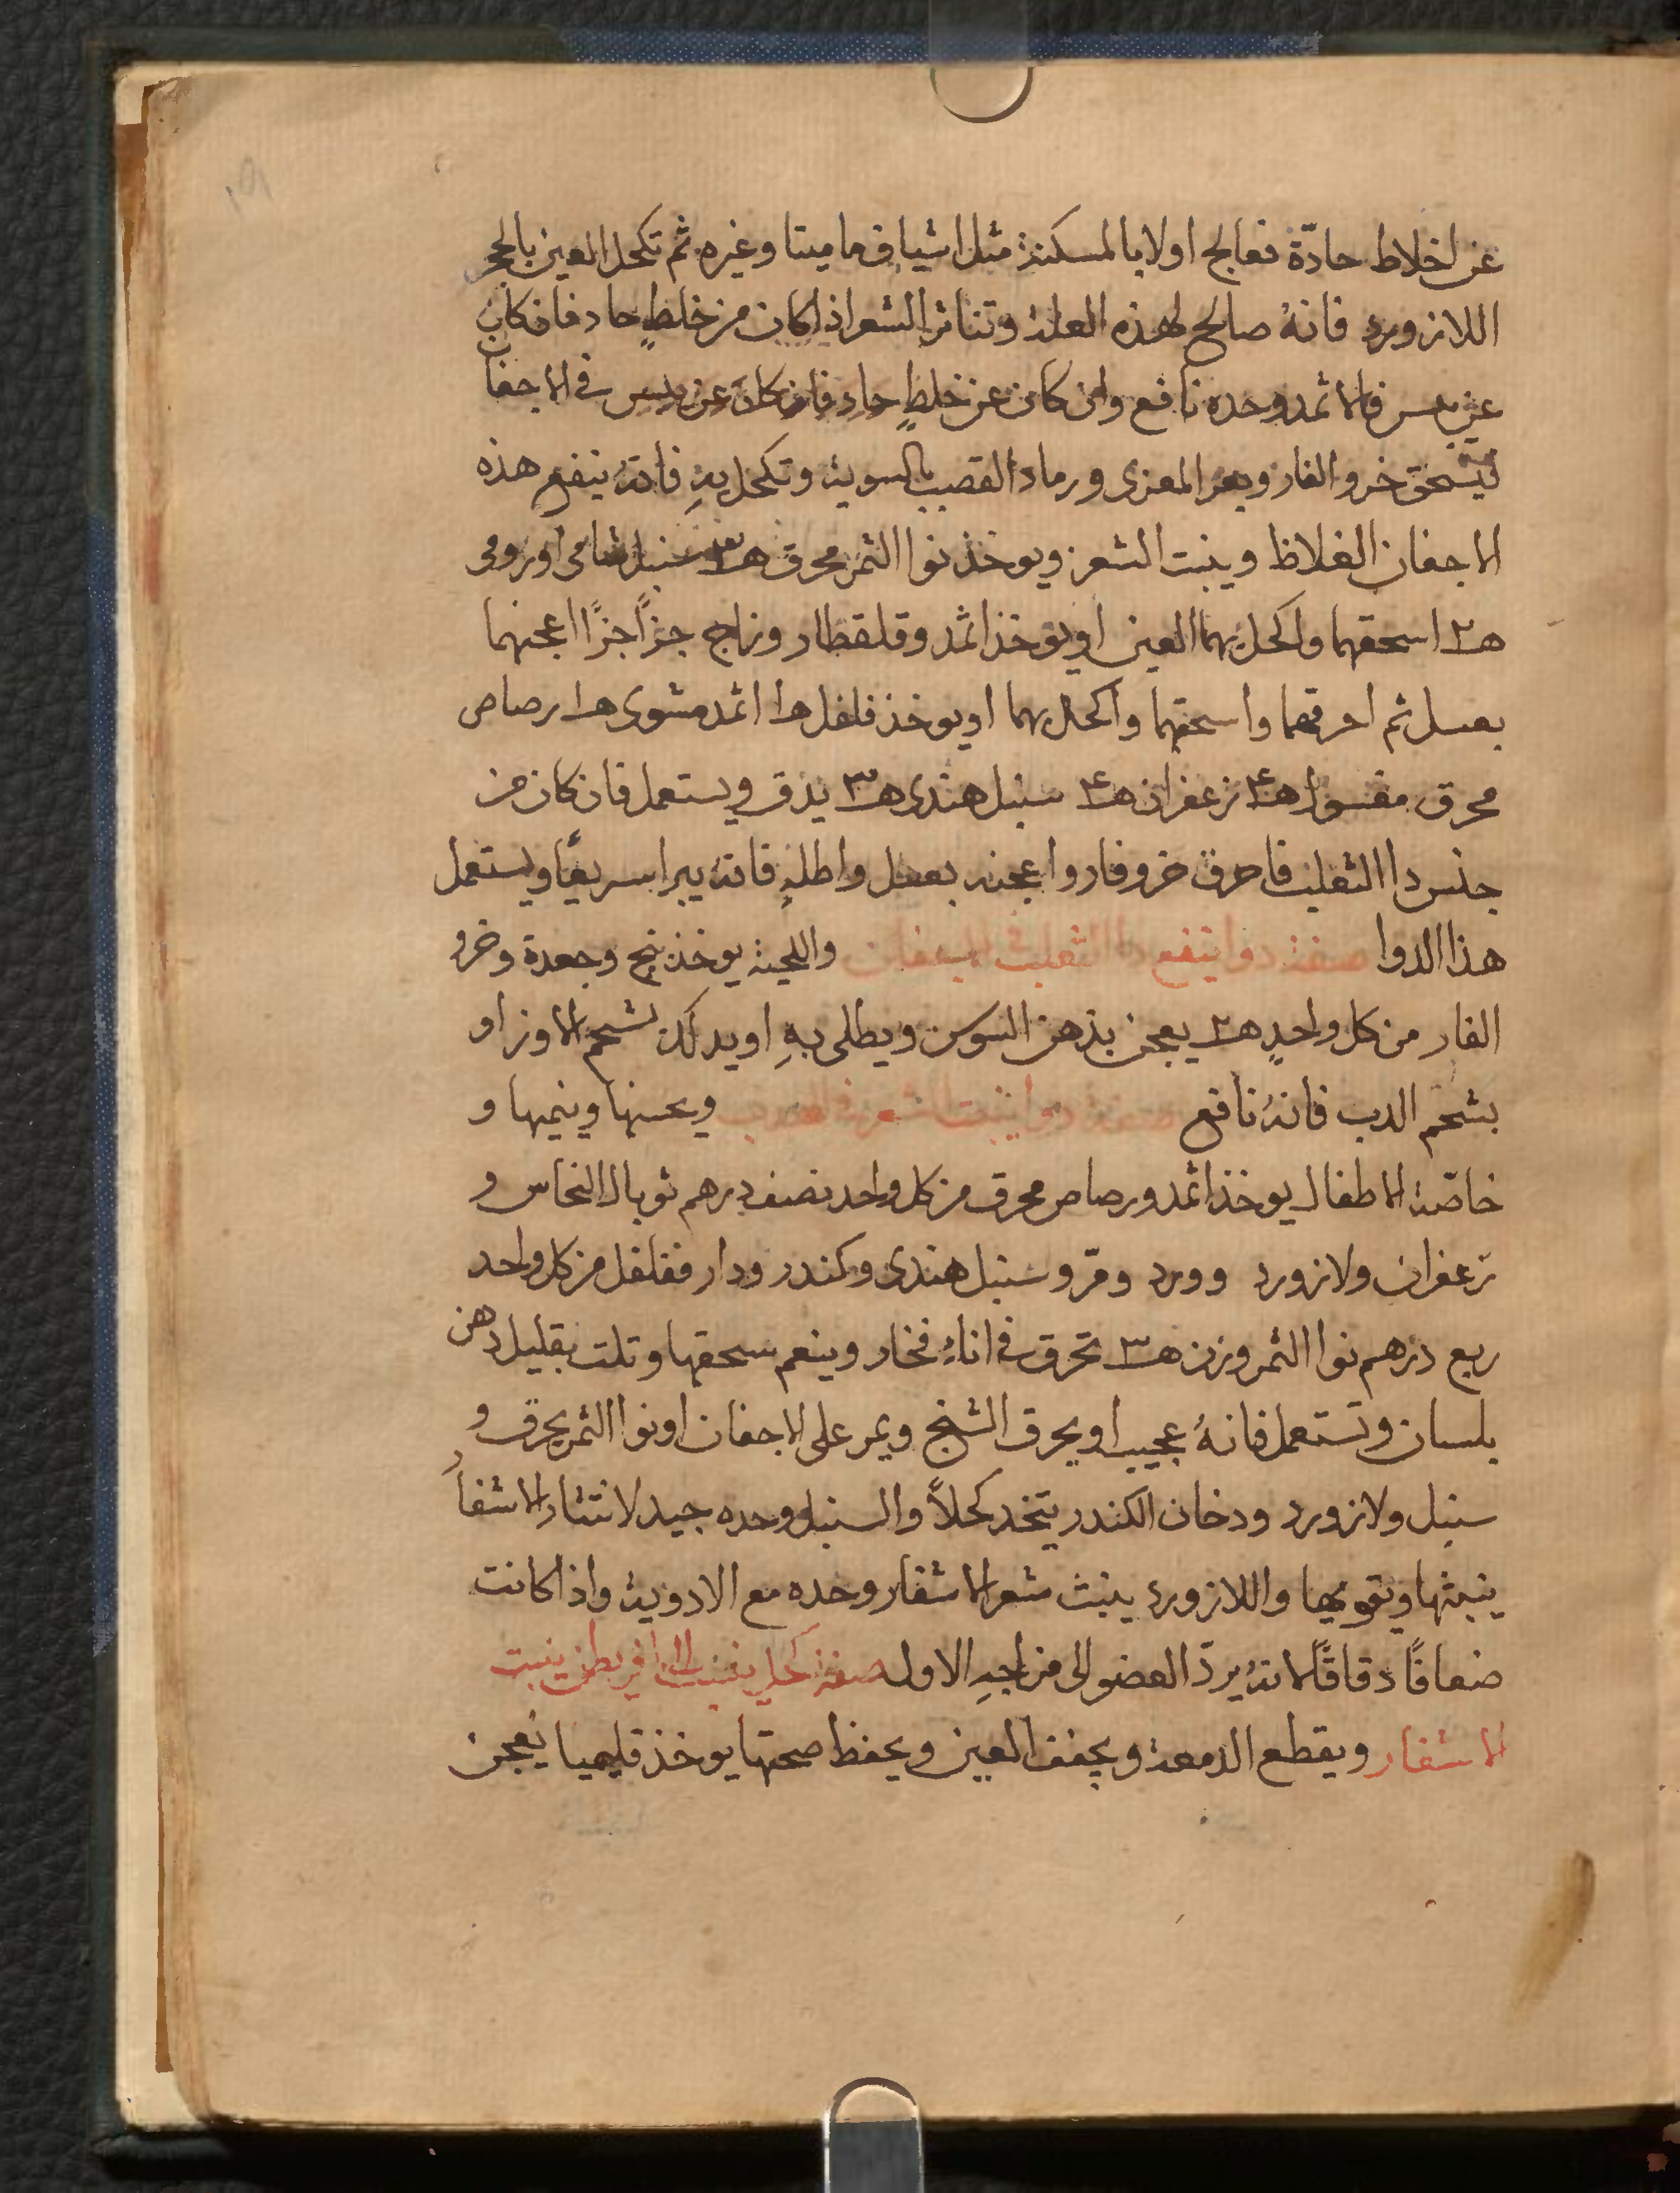 عن اخلاط حادّة فعالج اولا بالمسكنة مثل اشياف ماميتا وغيره ثم تكحل العين بالحجر
اللازورد فانهُ صالح لهذه العلة وتناثر الشعر اذا كان من خلطٍ حاد فان كان
عن يبس فالاثمد وحده نافع وان كان عن خلطٍ حاد فان كان عن يبس في الاجفان
فيسحق خرو الفار وبعر المعزى ورماد القصب بالسوية وتكحل بهِ فانهُ ينفع هذه
الاجفان الغلاظ وينبت الشعر ويوخذ نوا التمر محرق هـ٣ سنبل شامى او رومى
هـ٢ اسحقهما واكحل بهما العين او يوخذ اثمد وقلقطار وزاج جزًا جزًا اعجنهما
بعسل ثم احرقهما واسحقهما واكحل بهما او يوخذ فلفل هـ١ اثمد مشوى هـ١ رصاص
محرق مغسول هـ٤ زعفران هـ٤ سنبل هندى هـ٣ يدق ويستعمل فان كان من
جنس دا الثعلب فاحرق خرو فار واعجنه بعسل واطلهِ فانهُ يبرا سريعًا ويستعمل
هذا الدوا صفة دوا ينفع دا الثعلب في الاجفان واللحية يوخذ بنج وجعدة وخرو
الفار من كل واحدٍ هـ٢ يعجن بدهن السوسن ويطلى بهِ او يدلك بشحم الاوز او
بشحم الدب فانهُ نافع صفة دوا ينبت الشعر في الهدب ويحسنها وينميها و
خاصّة الاطفال يوخذ اثمد ورصاص محرق من كل واحد نصف درهم توبال النحاس و
زعفران ولازورد وورد ومرّ وسنبل هندى وكندر ودار ففلفل من كل واحد
ربع درهم نوا التمر وزن هـ٣ تحرق في اناءِ فخار وينعم سحقها وتلت بقليل دهن
بلسان وتستعمل فانهُ عجيب او يحرق الشنج ويمر على الاجفان او نوا التمر يحرق و
سنبل ولازورد ودخان الكندر يتخد كحلاً والسنبل وحده جيد لانتثار الاشفار
ينبتها ويقويها واللازورد ينبت شعر الاشفار وحده مع الادوية واذا كانت
ضعافًا دقاقًا لانهُ يردّ العضو الى مزاجهِ الاول صفة كحل ينسب الى ينبت
الاشفار ويقطع الدمعة ويجفف العين ويحفظ صحتها يوخذ قليميا يعجن